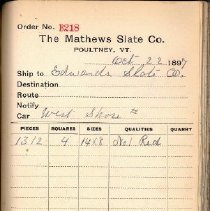 Order No. E218
The Mathews Slate Co.
POULTNEY, VT.
Oct 22 1897
Ship to Edwards Slate Co.
Destination
Route
Notify
Car West Shore
PIECES SQUARES SIZES QUALITIES QUARRY
1312 4 14x8 No 1 Red